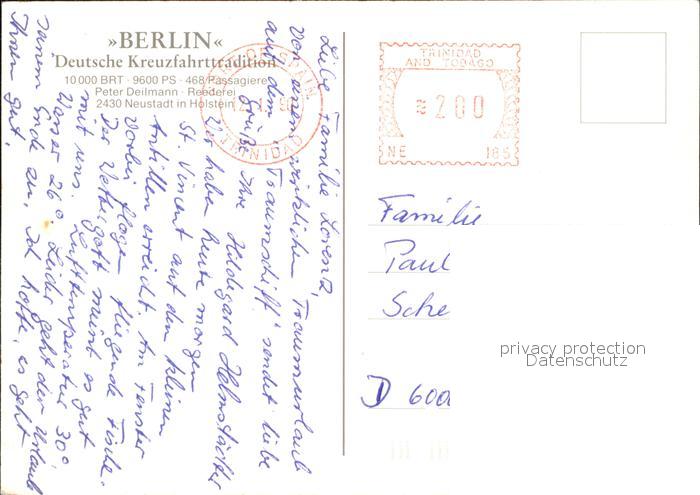 »BERLIN«
Deutsche Kreuzfahrttradition
10 000 BRT · 9600 PS · 468 Passagiere
Peter Deilmann · Reederei
2430 Neustadt in Holstein
PORT OF SPAIN
TRINIDAD
TRINIDAD
AND TOBAGO
≈200
NE 185
Liebe Familie Lorenz,
Von einem wirklichen Traumurlaub
auf dem "Traumschiff" sendet liebe
Grüße Ihre Hildegard Helmstädter
Wir haben heute morgen
St. Vincent auf den kleinen
Antillen erreicht. Am Fenster
vorbei flogen fliegende Fische.
Der Wettergott meint es gut
mit uns. Lufttemperatur 30°,
Wasser 26°. Leider geht der Urlaub
seinem Ende zu. Ich hoffe, es geht
Ihnen gut.
Familie
Paul
Sche
D 600
privacy protection
Datenschutz